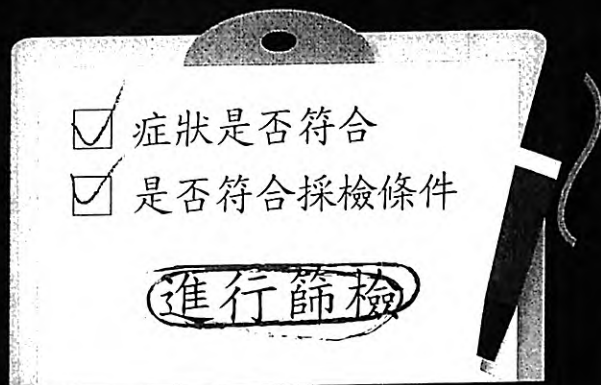 症狀是否符合
是否符合採檢條件
進行篩檢